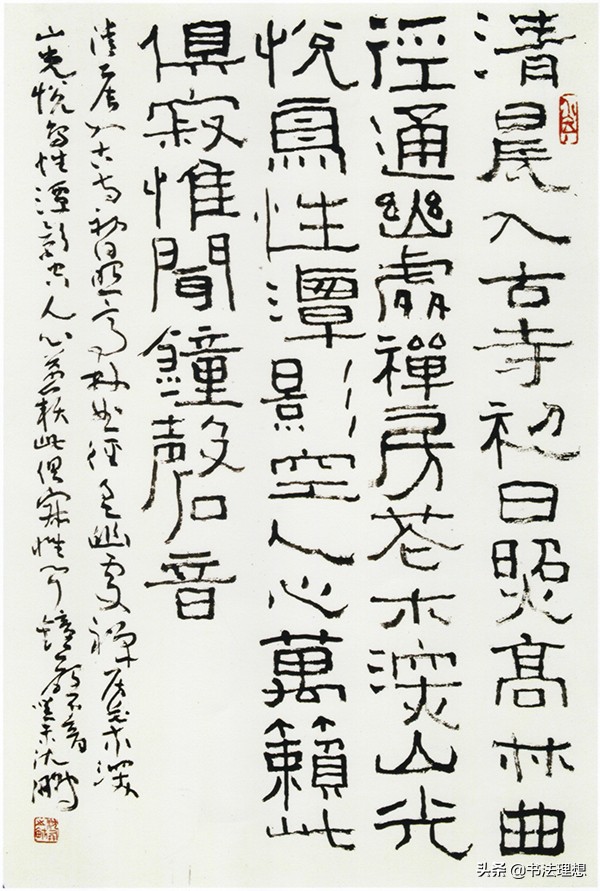 清晨入古寺初日照高林曲
徑通幽處禪房花木深山光
悅鳥性潭影空人心萬籟此
俱寂惟聞鐘磬音
清晨入古寺初日照高林曲徑通幽處禪房花木深
山光悅鳥性潭影空人心萬籟此俱寂惟聞鐘磬音癸未沈鵬
头条 @书法理想